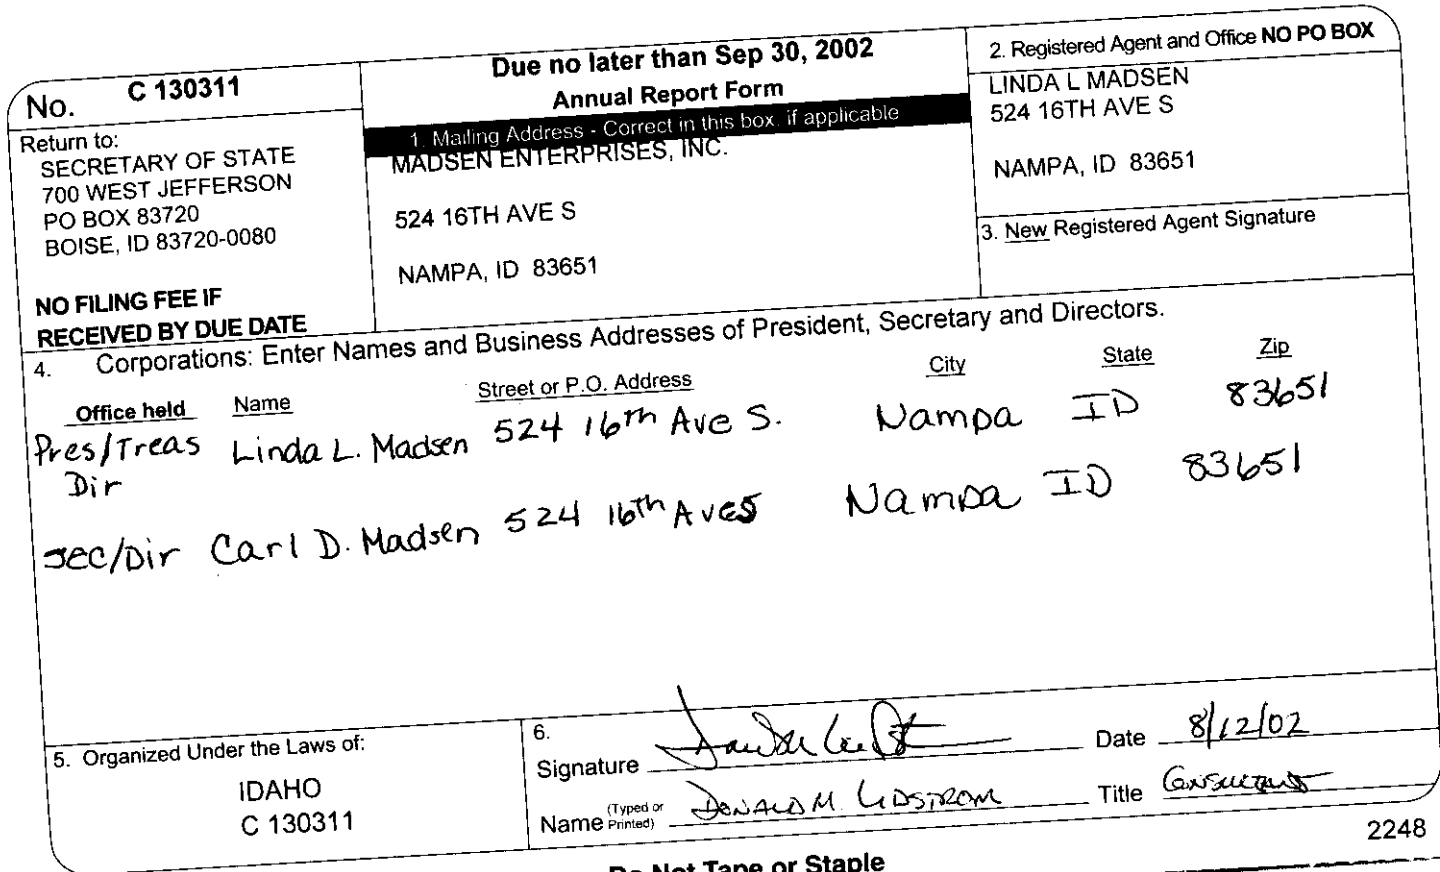 No. C 130311
Return to:
SECRETARY OF STATE
700 WEST JEFFERSON
PO BOX 83720
BOISE, ID 83720-0080
NO FILING FEE IF
RECEIVED BY DUE DATE
Due no later than Sep 30, 2002
Annual Report Form
1. Mailing Address - Correct in this box, if applicable
MADSEN ENTERPRISES, INC.
524 16TH AVE S
NAMPA, ID 83651
2. Registered Agent and Office NO PO BOX
LINDA L MADSEN
524 16TH AVE S
NAMPA, ID 83651
3. New Registered Agent Signature
4. Corporations: Enter Names and Business Addresses of President, Secretary and Directors.
Office held Name Street or P.O. Address City State Zip
Pres/Treas Linda L. Madsen 524 16th Ave S. Nampa ID 83651
Dir
Sec/Dir Carl D. Madsen 524 16th Ave S Nampa ID 83651
5. Organized Under the Laws of:
IDAHO
C 130311
6.
Signature Date 8/12/02
Name (Typed or Printed) DONALD M. LIDSTROM Title CONSULTANT
2248
Do Not Tape or Staple